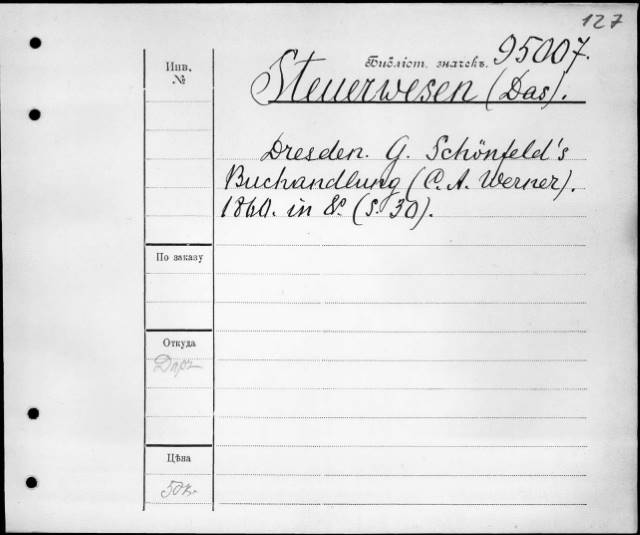 127
Библіот. значекъ. 95007.
Инв.
№
Steuerwesen (Das).
Dresden. G. Schönfeld's
Buchandlung (C. A. Werner).
1860. in 8º. (S. 30).
По заказу
Откуда
Даръ
Цѣна
50к.